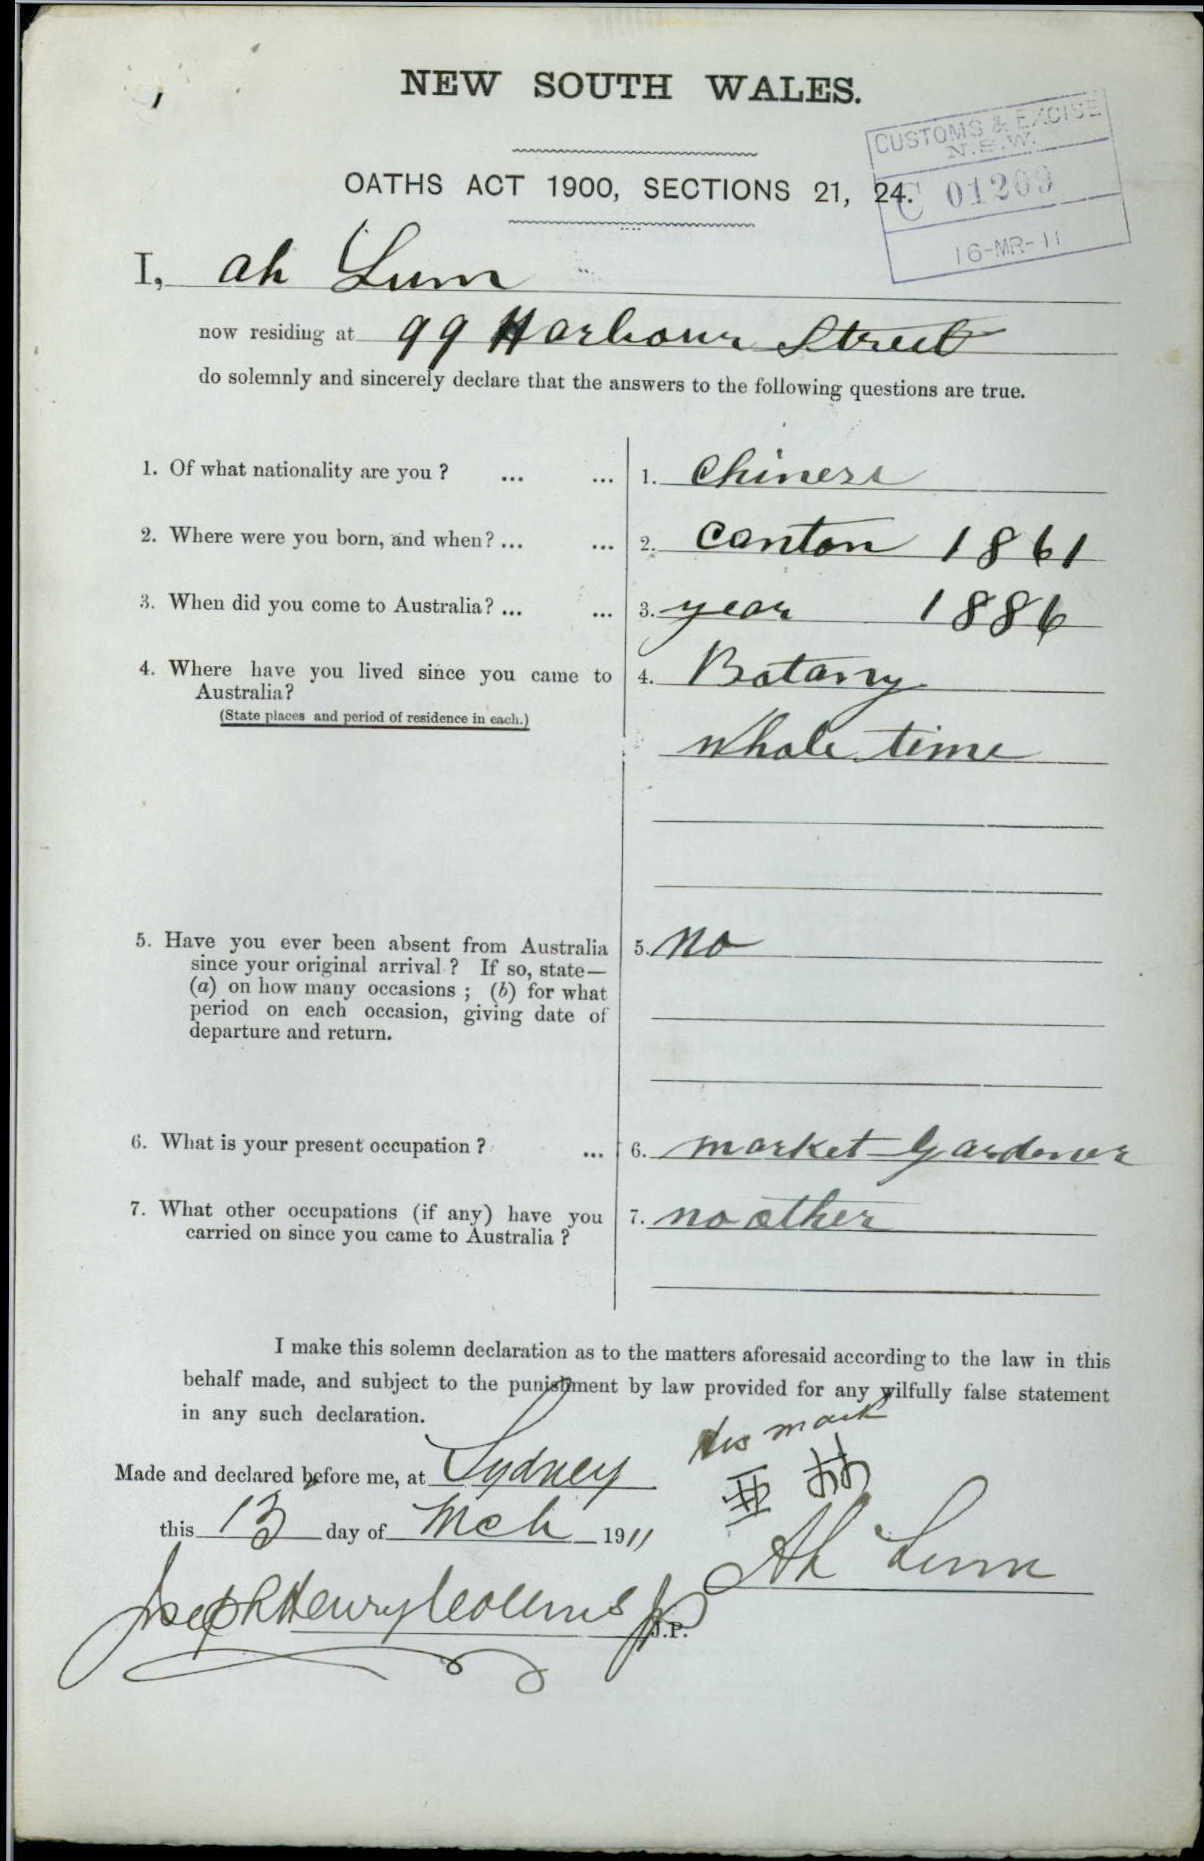 NEW SOUTH WALES.
CUSTOMS & EXCISE
N.S.W.
C 01209
16-MR-11
OATHS ACT 1900, SECTIONS 21, 24.
I, ah Lum
now residing at 99 Harbour Street
do solemnly and sincerely declare that the answers to the following questions are true.
1. Of what nationality are you ? ... ... 1. Chinese
2. Where were you born, and when? ... ... 2. Canton 1861
3. When did you come to Australia? ... ... 3. year 1886
4. Where have you lived since you came to 4. Botany
Australia?
(State places and period of residence in each.)
whole time
5. Have you ever been absent from Australia 5. no
since your original arrival ? If so, state—
(a) on how many occasions ; (b) for what
period on each occasion, giving date of
departure and return.
6. What is your present occupation ? ... 6. market Gardener
7. What other occupations (if any) have you 7. no other
carried on since you came to Australia ?
I make this solemn declaration as to the matters aforesaid according to the law in this
behalf made, and subject to the punishment by law provided for any wilfully false statement
in any such declaration.
his mark
Made and declared before me, at Sydney
this 13 day of Mch 1911
Ah Lum
Joseph Henry Collins JP
J.P.